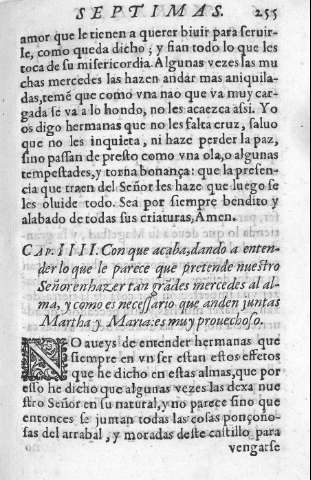 SEPTIMAS. 255
amor que le tienen a querer biuir para seruir-
le, como queda dicho; y fian todo lo que les
toca de su misericordia. Algunas vezes las mu
chas mercedes las hazen andar mas aniquila-
das, temē que como vna nao que va muy car-
gada se va a lo hondo, no les acaezca assi. Yo
os digo hermanas que no les falta cruz, saluo
que no les inquieta, ni haze perder la paz,
sino passan de presto como vna ola, o algunas
tempestades, y torna bonança: que la presen-
cia que traen del Señor les haze que luego se
les oluide todo. Sea por siempre bendito y
alabado de todas sus criaturas, Amen.
CAP. IIII. Con que acaba, dando a enten-
der lo que le parece que pretende nuestro
Señor en hazer tan grādes mercedes al al
ma, y como es necessario que anden juntas
Martha y Maria: es muy prouechoso.
NO aueys de entender hermanas que
siempre en vn ser estan estos effetos
que he dicho en estas almas, que por
esso he dicho que algunas vezes las dexa nue
stro Señor en su natural, y no parece sino que
entonces se juntan todas las cosas ponçoño-
sas del arrabal, y moradas deste castillo para
vengarse